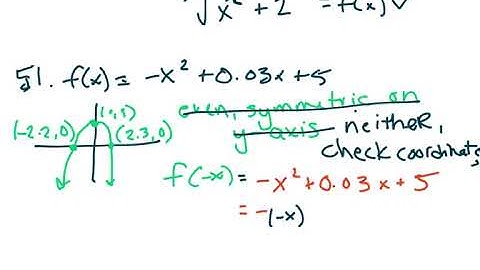 √x² + 2 = f(x) ✓
51. f(x) = -x² + 0.03x + 5
even, symmetric on
y axis neither,
check coordinates
(-2.2, 0) (2.3, 0)
f(-x) = -x² + 0.03x + 5
= -(-x)